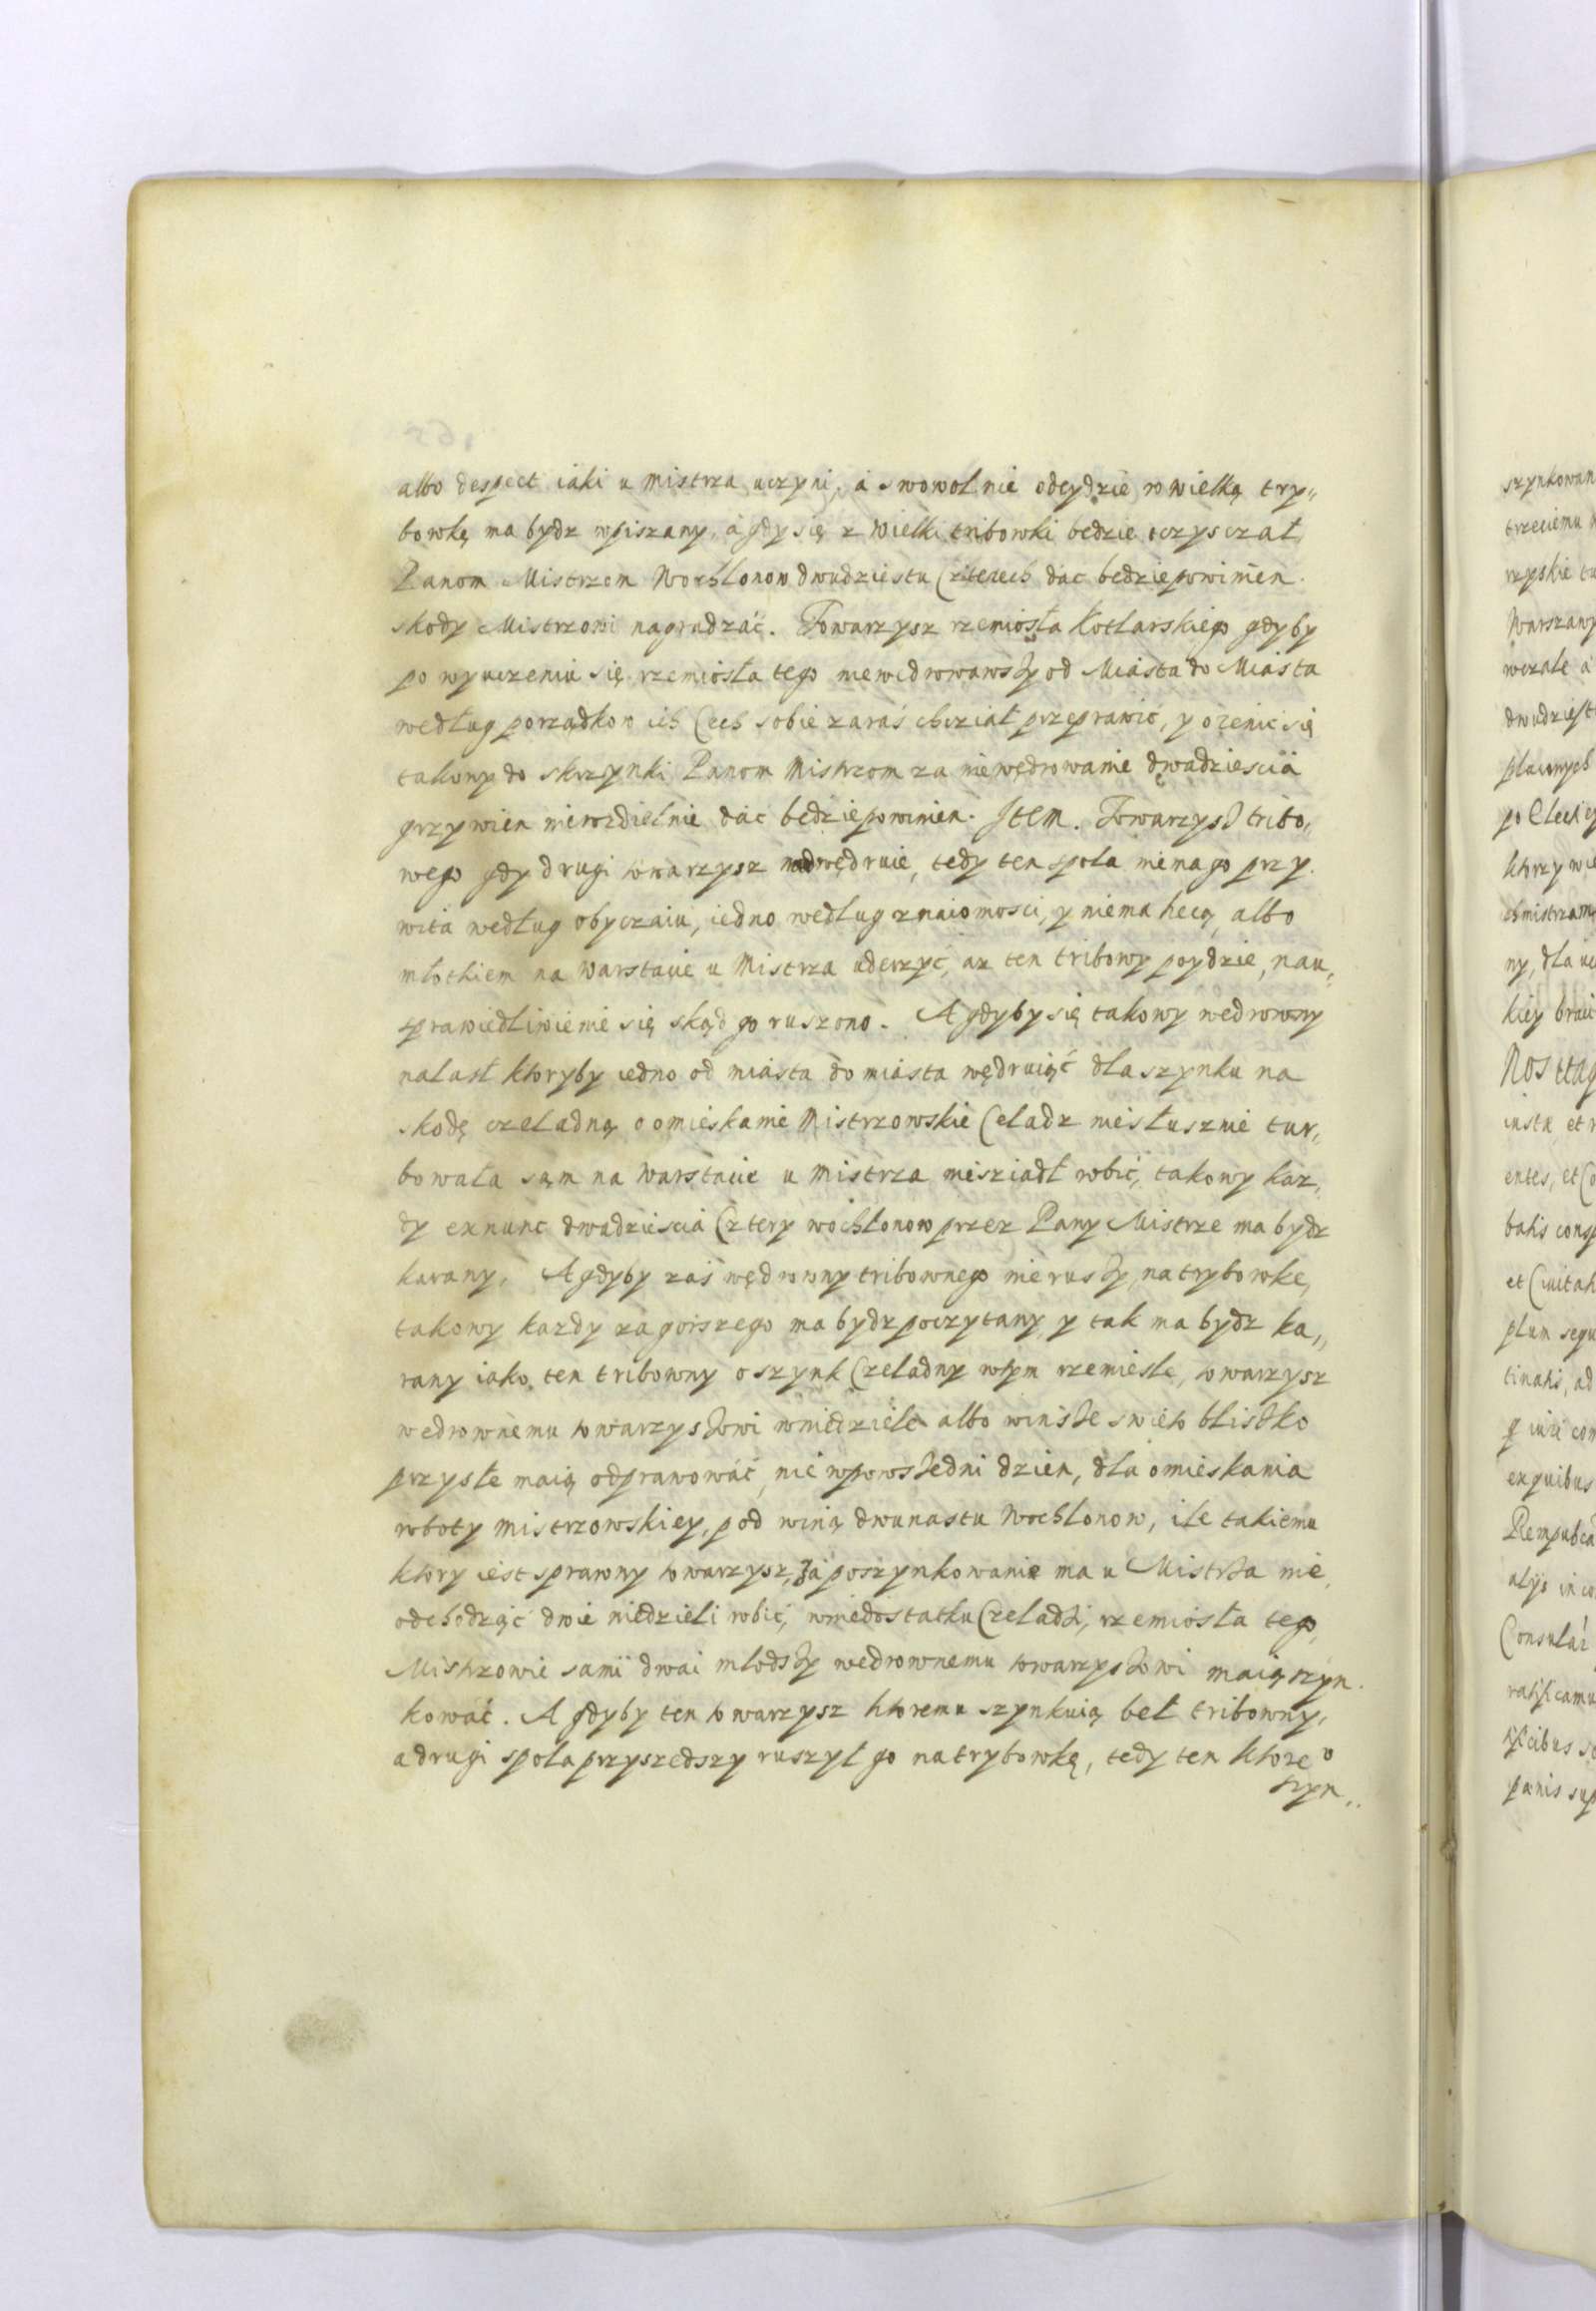 albo despect iaki u Mistrza uczyni, a swowolnie odeydzie w wielką try„
bowkę ma bydz wpiszany, a gdy się z wielki tribowki bedzie oczysczał
Panom Mistrzom Wochlonow dwudziestu Czterech dac bedzie powinien.
skody Mistrzowi nagradzać. Towarzysz rzemiosła kotlarskiego gdyby
po wyuczeniu się rzemiosła tego niewedrowawszy od Miasta do Miasta
według porządkow ich Cech sobie zaraś chciał przeprawić, y ozenić się
takowy do skrzynki Panom Mistrzom za niewędrowanie dwadziescia
grzywien nieodzielnie dac bedzie powinien. Item. Towarzysz tribo„
wego gdy drugi towarzysz nadwędruie, tedy ten spola niema go przy.
wita według obyczaiu, iedno według znaiomosci, y niema hecą albo
młotkiem na Warstacie u Mistrza uderzyć, az ten tribowy poydzie, nau„
sprawiedliwienie się skąd go ruszono. A gdyby się takowy wedrowny
nalasł ktoryby iedno od miasta do miasta wędruiąć dla szynku na
skodę czeladną o omieskanie Mistrzowskie Czeladz niesłusznie tur„
bowała sam na Warstacie u Mistrza niesziadł robić, takowy kaz„
dy exnunc dwadziescia Cztery wochlonow przez Pany Mistrze ma bydz
karany, A gdyby zaś wędrowny tribownego nieruszy, na trybowke,
takowy kazdy za goiszego ma bydz poczytany, y tak ma bydz ka„
rany iako ten tribowny o szynk Czeladny wtym rzemieśle, towarzysz
wedrownemu towarzyszowi wniedziele albo winsze swieto bliszko
przyszłe maią odprawowáć, nie wpowszedni dzien, dla omieskania
roboty mistrzowskiey, pod winą dwunastu Wochlonow, ile takiemu
ktory iest sprawny towarzysz, Za poszynkowanie ma u Mistrza nie
odchodząć dwie niedzieli robić, wniedostatku Czeladzi, rzemiosła tego
Mistrzowie sami dwai młodszy wedrownemu towarzyszowi maią szyn.
kowáć. A gdyby ten towarzysz ktoremu szynkuią beł tribowny,
a drugi spola przyszedszy ruszył go na trybowkę, tedy ten ktore°
szyn„